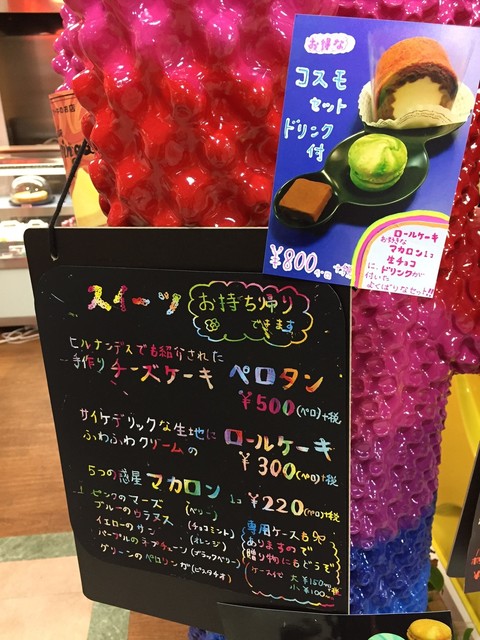 お得な
コスモ
セット
ドリンク
付
¥800(ペロ)+税
ロールケーキ
お好きな
マカロン1コ
生チョコ
に、ドリンクが
付いた
よくばりなセット!!
スイーツ
お持ち帰り
できます
ヒルナンデスでも紹介された
手作り チーズケーキ ペロタン
¥500(ペロ)+税
サイケデリックな生地に
ふわふわクリームの
ロールケーキ
¥300(ペロ)+税
5つの惑星 マカロン 1コ ¥220(ペロ)+税
ピンクのマーズ (ベリー)
ブルーのウラヌス (チョコミント)
イエローのサン (オレンジ)
パープルのネプチューン (ブラックベリー)
グリーンのペロリンガ (ピスタチオ)
専用ケースも
ありますので
贈り物にもどうぞ
ケース代 大 ¥150+税
小 ¥100+税